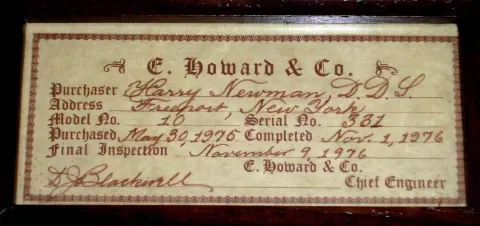 E. Howard & Co.
Purchaser Harry Newman, D.D.S.
Address Freeport, New York
Model No. 10 Serial No. 331
Purchased May 30, 1975 Completed Nov. 1, 1976
Final Inspection November 9, 1976
E. Howard & Co.
D J Blackwell Chief Engineer